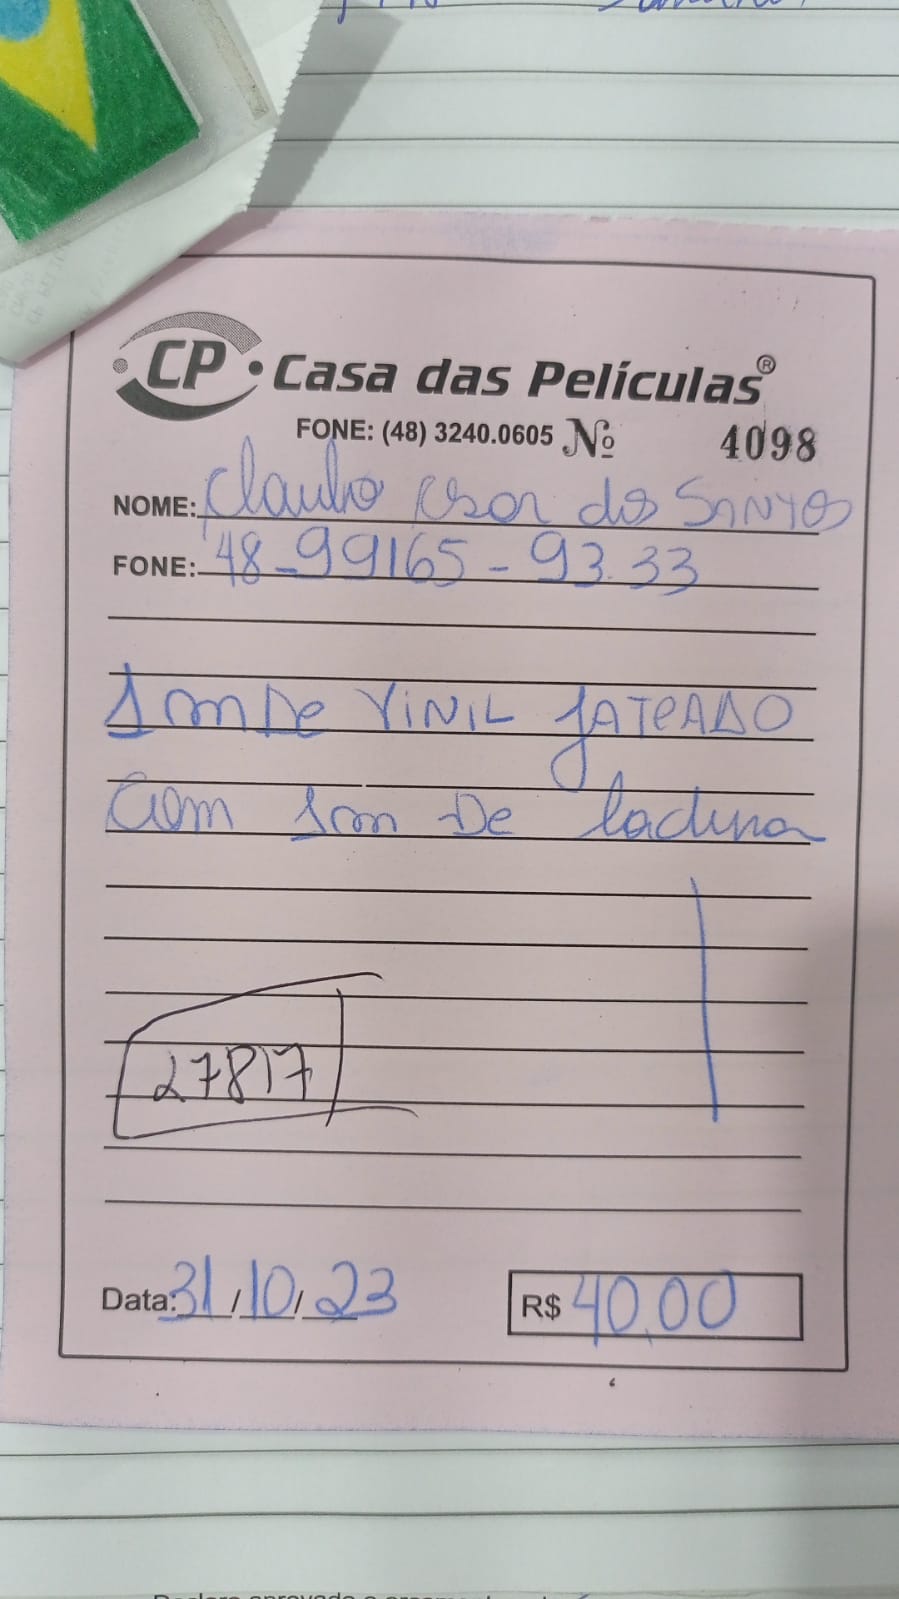 CP Casa das Películas®
FONE: (48) 3240.0605 Nº 4098
NOME: Claudio dos SANTOS
FONE: 48-99165-93.33
1 m De VINIL JATEADO
Com 1m De
27817
Data: 31/10/23 R$ 40,00